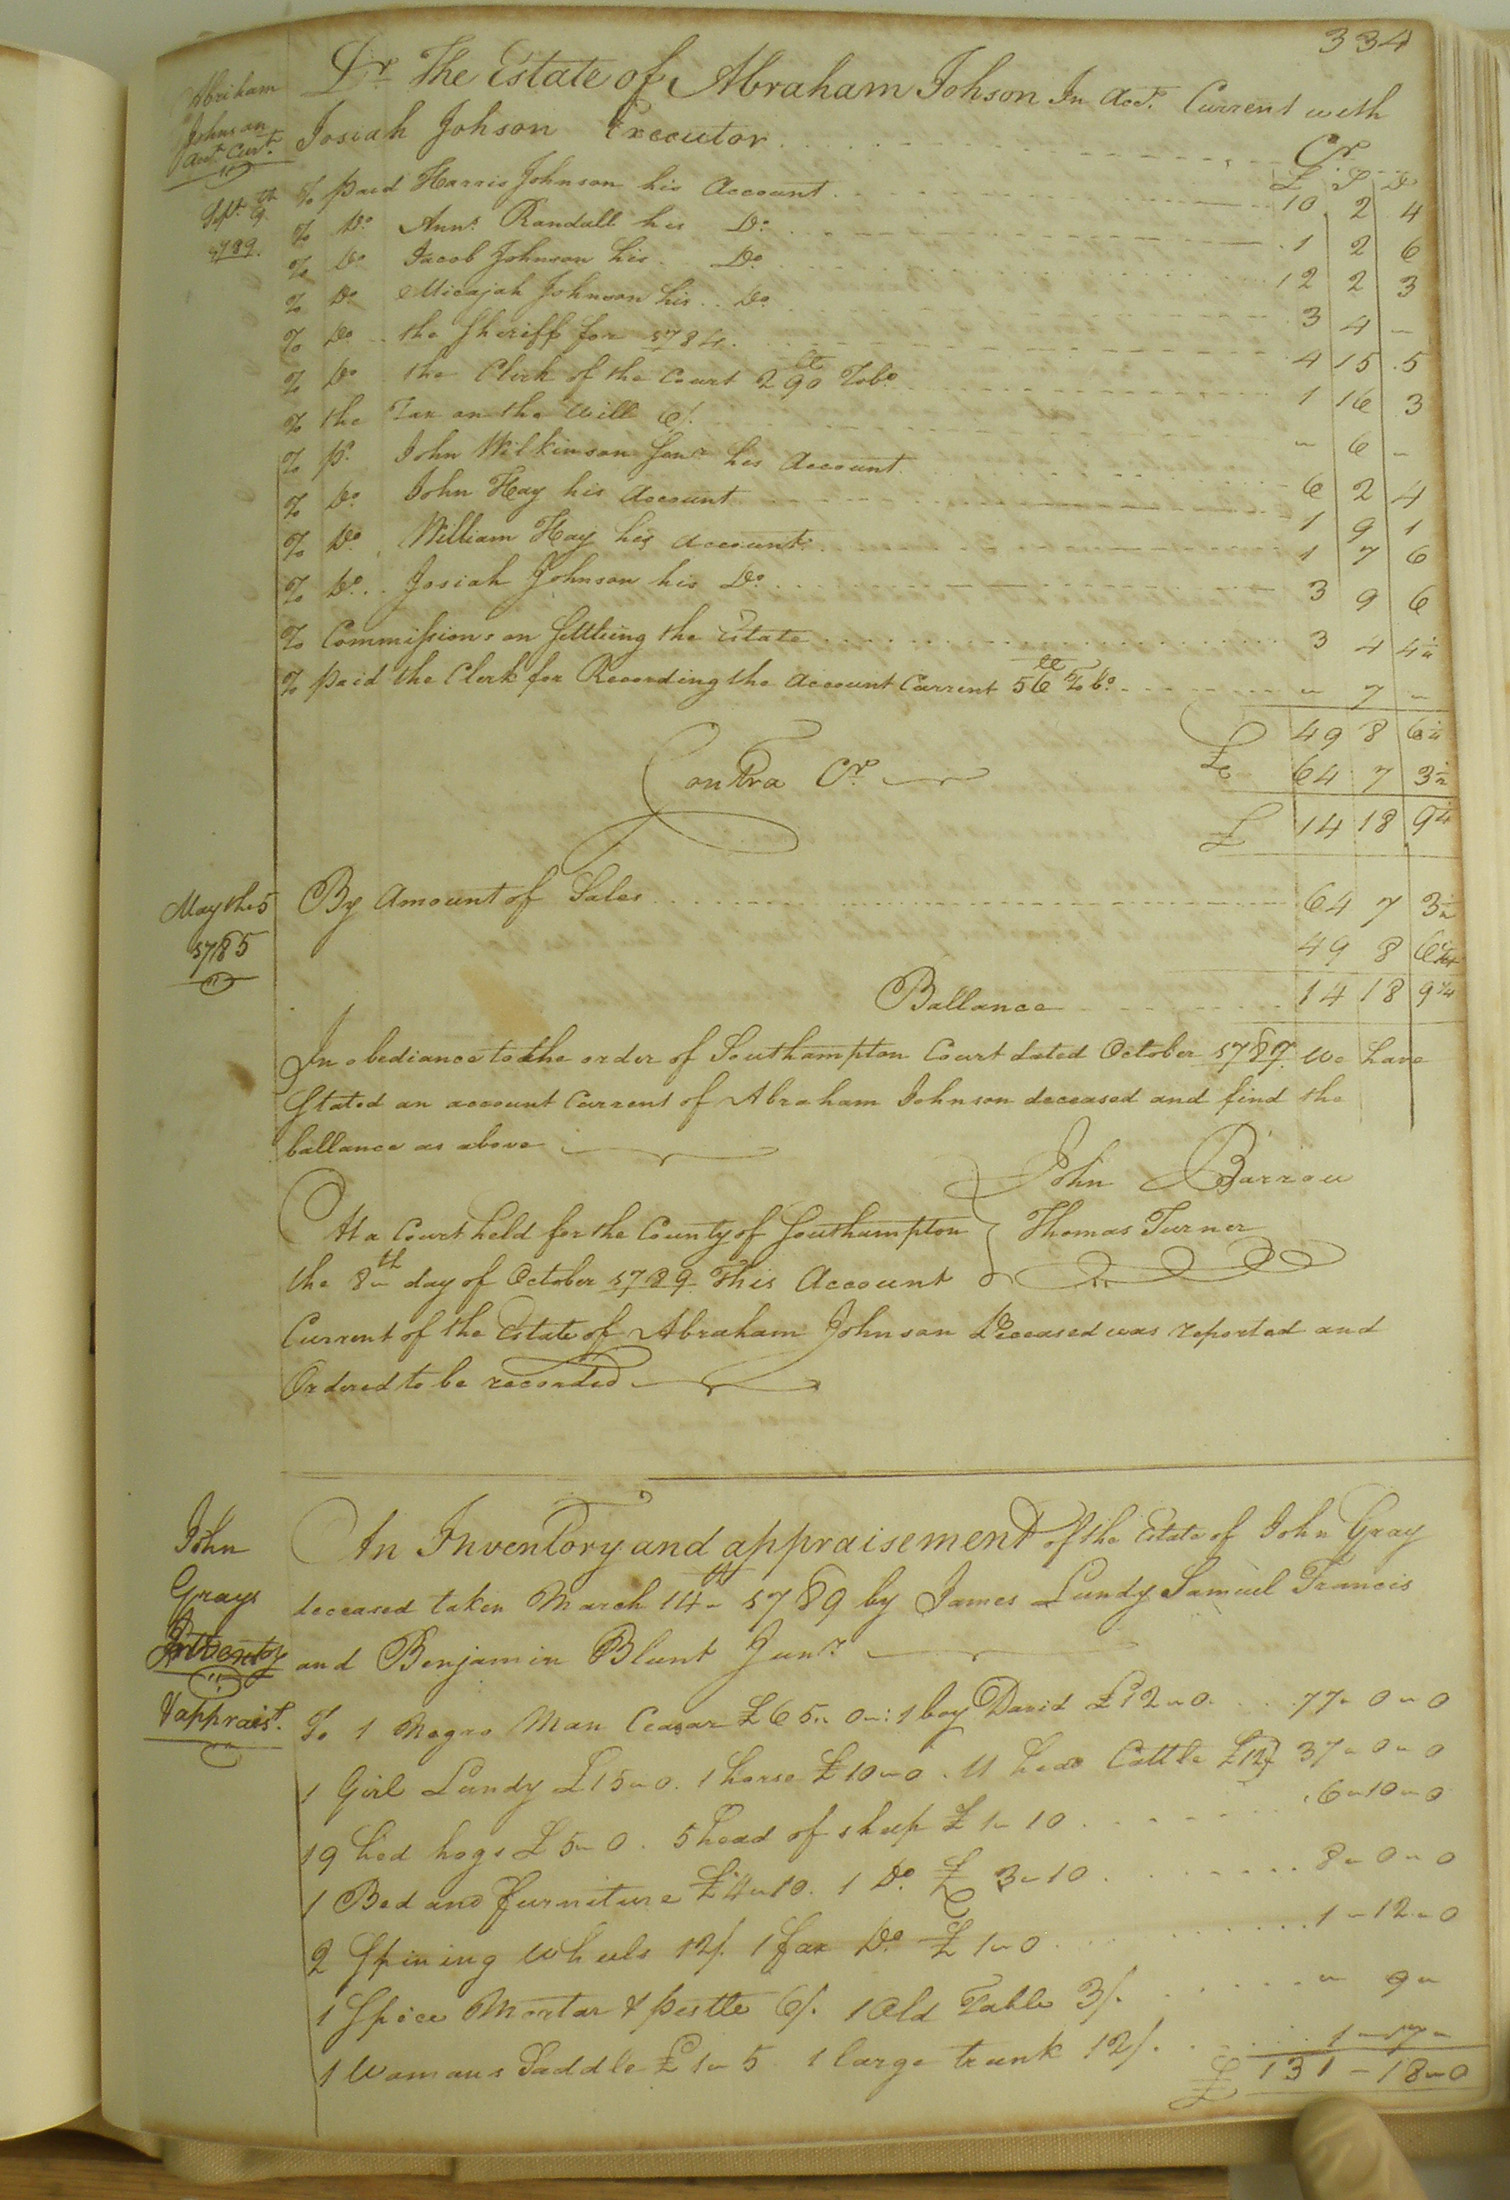 334
Dr The Estate of Abraham Johson In Acct. Current with
Abriham
Johnson
Act. Curt.
Josiah Johson Executor
Cr
£ S D
Sept. th 9.
1789.
To paid Harris Johnson his Account 10 2 4
To Do Anns. Randall his Do. 1 2 6
To Do Jacob Johnson his Do 12 2 3
To Do Micajah Johnson his Do. 3 4 -
To Do the Sheriff for 1784. 4 15 5
To Do the Clerk of the Court 290 Tobo. 1 16 3
To the Tax on the Will 6/. - 6 -
To pd. John Wilkinson Senr his Account 6 2 4
To Do. John Hay his Account 1 9 1
To Do. William Hay his Account 1 7 6
To Do. Josiah Johnson his Do. 3 9 6
To Commissions on Settleing the Estate 3 4 4¼
To paid the Clerk for Recording the Account Current 56 Tobo. - 7 -
49 8 6¼
Contra Cr. £ 64 7 3½
£ 14 18 9¼
May the 5
1785
By Amount of Sales 64 7 3½
49 8 6¼
Ballance 14 18 9¼
In obediance to the order of Southampton Court dated October 1789. We have
Stated an account Current of Abraham Johnson deceased and find the
ballance as above
John Barrow
At a Court held for the County of Southampton Thomas Turner
the 8th day of October 1789. This Account
Current of the Estate of Abraham Johnson Deceased was reported and
Ordered to be recorded
John
Grays
Inventy
& appraist.
An Inventory and appraisement of the Estate of John Gray
deceased taken March 14th 1789 by James Lundy Samuel Francis
and Benjamin Blunt Junr.
To 1 Negro Man Ceasar £65 " 0 " : 1 boy David £12 " 0. 77 " 0 " 0
1 Girl Lundy £15 " 0. 1 horse £10 " 0. 11 head Cattle £12 37 " 0 " 0
19 hed hogs £5 " 0. 5 head of sheep £1 " 10 6 " 10 " 0
1 Bed and furniture £4 " 10. 1 Do. £3 " 10 8 " 0 " 0
2 Spining Wheels 12/. 1 fax Do £1 " 0 1 " 12 " 0
1 Spice Mortar & pestle 6/. 1 Old Table 3/. " 9 "
1 Womans Saddle £1 " 5 1 large trunk 12/. 1 " 17 "
£ 131 - 18 " 0